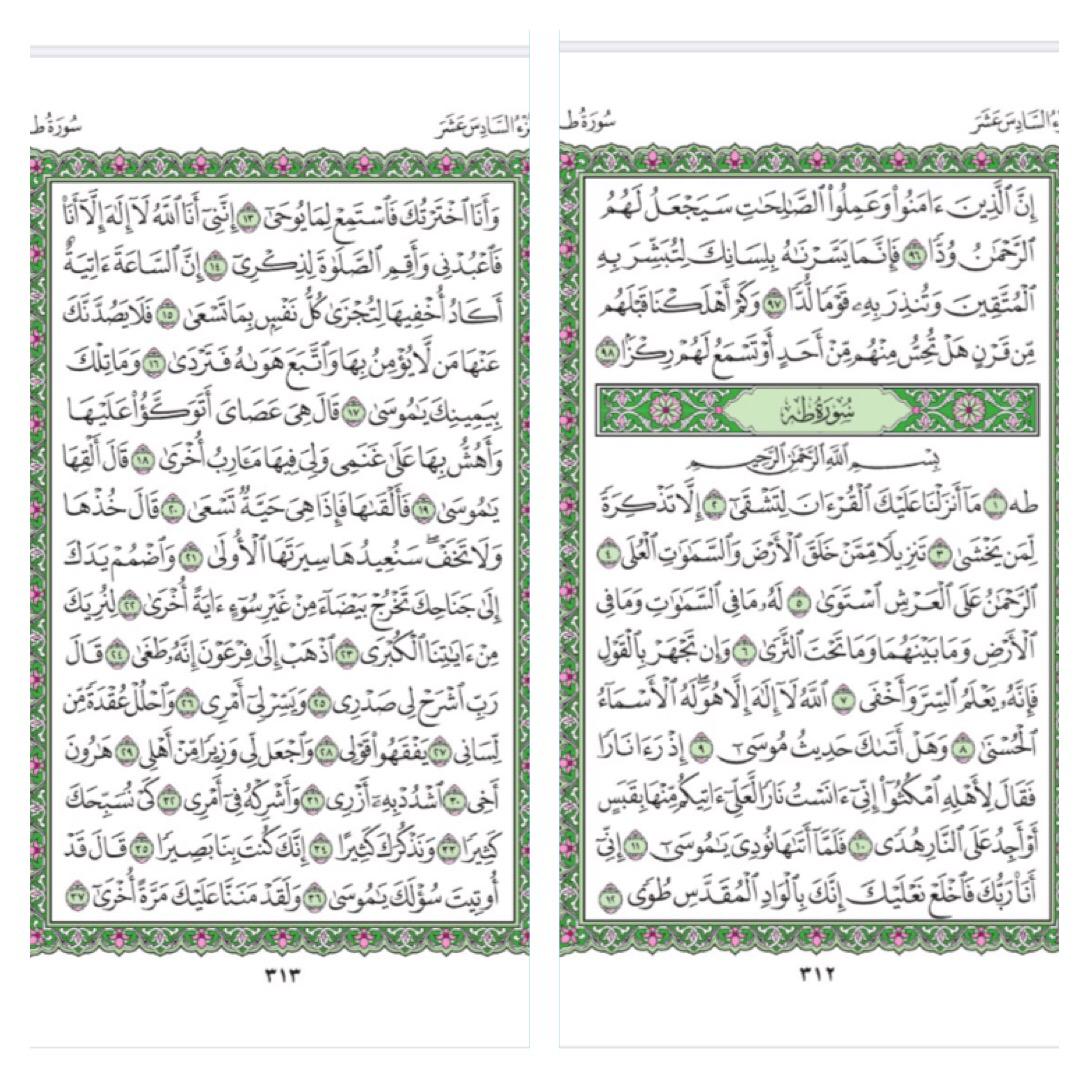 زء السادس عشر
سورة ط
إِنَّ ٱلَّذِينَ ءَامَنُوا۟ وَعَمِلُوا۟ ٱلصَّٰلِحَٰتِ سَيَجْعَلُ لَهُمُ
ٱلرَّحْمَٰنُ وُدًّا ٩٦ فَإِنَّمَا يَسَّرْنَٰهُ بِلِسَانِكَ لِتُبَشِّرَ بِهِ
ٱلْمُتَّقِينَ وَتُنذِرَ بِهِۦ قَوْمًا لُّدًّا ٩٧ وَكَمْ أَهْلَكْنَا قَبْلَهُم
مِّن قَرْنٍ هَلْ تُحِسُّ مِنْهُم مِّنْ أَحَدٍ أَوْ تَسْمَعُ لَهُمْ رِكْزًۢا ٩٨
سُورَةُ طه
بِسْمِ ٱللَّهِ ٱلرَّحْمَٰنِ ٱلرَّحِيمِ
طه ١ مَآ أَنزَلْنَا عَلَيْكَ ٱلْقُرْءَانَ لِتَشْقَىٰٓ ٢ إِلَّا تَذْكِرَةً
لِّمَن يَخْشَىٰ ٣ تَنزِيلًا مِّمَّنْ خَلَقَ ٱلْأَرْضَ وَٱلسَّمَٰوَٰتِ ٱلْعُلَى ٤
ٱلرَّحْمَٰنُ عَلَى ٱلْعَرْشِ ٱسْتَوَىٰ ٥ لَهُۥ مَا فِى ٱلسَّمَٰوَٰتِ وَمَا فِى
ٱلْأَرْضِ وَمَا بَيْنَهُمَا وَمَا تَحْتَ ٱلثَّرَىٰ ٦ وَإِن تَجْهَرْ بِٱلْقَوْلِ
فَإِنَّهُۥ يَعْلَمُ ٱلسِّرَّ وَأَخْفَى ٧ ٱللَّهُ لَآ إِلَٰهَ إِلَّا هُوَ ۖ لَهُ ٱلْأَسْمَآءُ
ٱلْحُسْنَىٰ ٨ وَهَلْ أَتَىٰكَ حَدِيثُ مُوسَىٰٓ ٩ إِذْ رَءَا نَارًا
فَقَالَ لِأَهْلِهِ ٱمْكُثُوٓا۟ إِنِّىٓ ءَانَسْتُ نَارًا لَّعَلِّىٓ ءَاتِيكُم مِّنْهَا بِقَبَسٍ
أَوْ أَجِدُ عَلَى ٱلنَّارِ هُدًى ١٠ فَلَمَّآ أَتَىٰهَا نُودِىَ يَٰمُوسَىٰٓ ١١ إِنِّىٓ
أَنَا۠ رَبُّكَ فَٱخْلَعْ نَعْلَيْكَ ۖ إِنَّكَ بِٱلْوَادِ ٱلْمُقَدَّسِ طُوًى ١٢
٣١٢
زء السادس عشر
سورة ط
وَأَنَا ٱخْتَرْتُكَ فَٱسْتَمِعْ لِمَا يُوحَىٰٓ ١٣ إِنَّنِىٓ أَنَا ٱللَّهُ لَآ إِلَٰهَ إِلَّآ أَنَا۠
فَٱعْبُدْنِى وَأَقِمِ ٱلصَّلَوٰةَ لِذِكْرِىٓ ١٤ إِنَّ ٱلسَّاعَةَ ءَاتِيَةٌ
أَكَادُ أُخْفِيهَا لِتُجْزَىٰ كُلُّ نَفْسٍۭ بِمَا تَسْعَىٰ ١٥ فَلَا يَصُدَّنَّكَ
عَنْهَا مَن لَّا يُؤْمِنُ بِهَا وَٱتَّبَعَ هَوَىٰهُ فَتَرْدَىٰ ١٦ وَمَا تِلْكَ
بِيَمِينِكَ يَٰمُوسَىٰ ١٧ قَالَ هِىَ عَصَاىَ أَتَوَكَّؤُا۟ عَلَيْهَا
وَأَهُشُّ بِهَا عَلَىٰ غَنَمِى وَلِىَ فِيهَا مَـَٔارِبُ أُخْرَىٰ ١٨ قَالَ أَلْقِهَا
يَٰمُوسَىٰ ١٩ فَأَلْقَىٰهَا فَإِذَا هِىَ حَيَّةٌ تَسْعَىٰ ٢٠ قَالَ خُذْهَا
وَلَا تَخَفْ ۖ سَنُعِيدُهَا سِيرَتَهَا ٱلْأُولَىٰ ٢١ وَٱضْمُمْ يَدَكَ
إِلَىٰ جَنَاحِكَ تَخْرُجْ بَيْضَآءَ مِنْ غَيْرِ سُوٓءٍ ءَايَةً أُخْرَىٰ ٢٢ لِنُرِيَكَ
مِنْ ءَايَٰتِنَا ٱلْكُبْرَى ٢٣ ٱذْهَبْ إِلَىٰ فِرْعَوْنَ إِنَّهُۥ طَغَىٰ ٢٤ قَالَ
رَبِّ ٱشْرَحْ لِى صَدْرِى ٢٥ وَيَسِّرْ لِىٓ أَمْرِى ٢٦ وَٱحْلُلْ عُقْدَةً مِّن
لِّسَانِى ٢٧ يَفْقَهُوا۟ قَوْلِى ٢٨ وَٱجْعَل لِّى وَزِيرًا مِّنْ أَهْلِى ٢٩ هَٰرُونَ
أَخِى ٣٠ ٱشْدُدْ بِهِۦٓ أَزْرِى ٣١ وَأَشْرِكْهُ فِىٓ أَمْرِى ٣٢ كَىْ نُسَبِّحَكَ
كَثِيرًا ٣٣ وَنَذْكُرَكَ كَثِيرًا ٣٤ إِنَّكَ كُنتَ بِنَا بَصِيرًا ٣٥ قَالَ قَدْ
أُوتِيتَ سُؤْلَكَ يَٰمُوسَىٰ ٣٦ وَلَقَدْ مَنَنَّا عَلَيْكَ مَرَّةً أُخْرَىٰٓ ٣٧
٣١٣